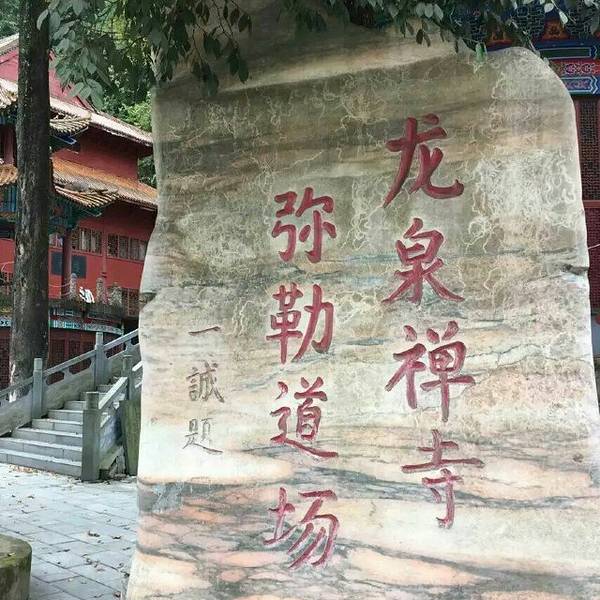 龙泉禅寺
弥勒道场
一誠题